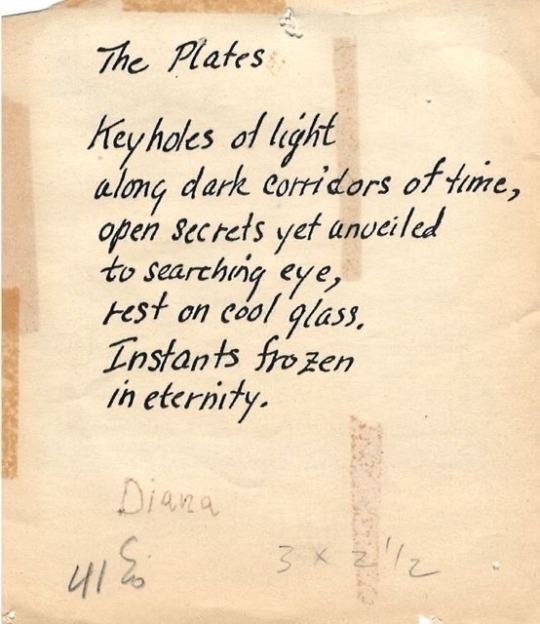 The Plates
Keyholes of light
along dark corridors of time,
open secrets yet unveiled
to searching eye,
rest on cool glass.
Instants frozen
in eternity.
Diana
41
3 x 2 1/2